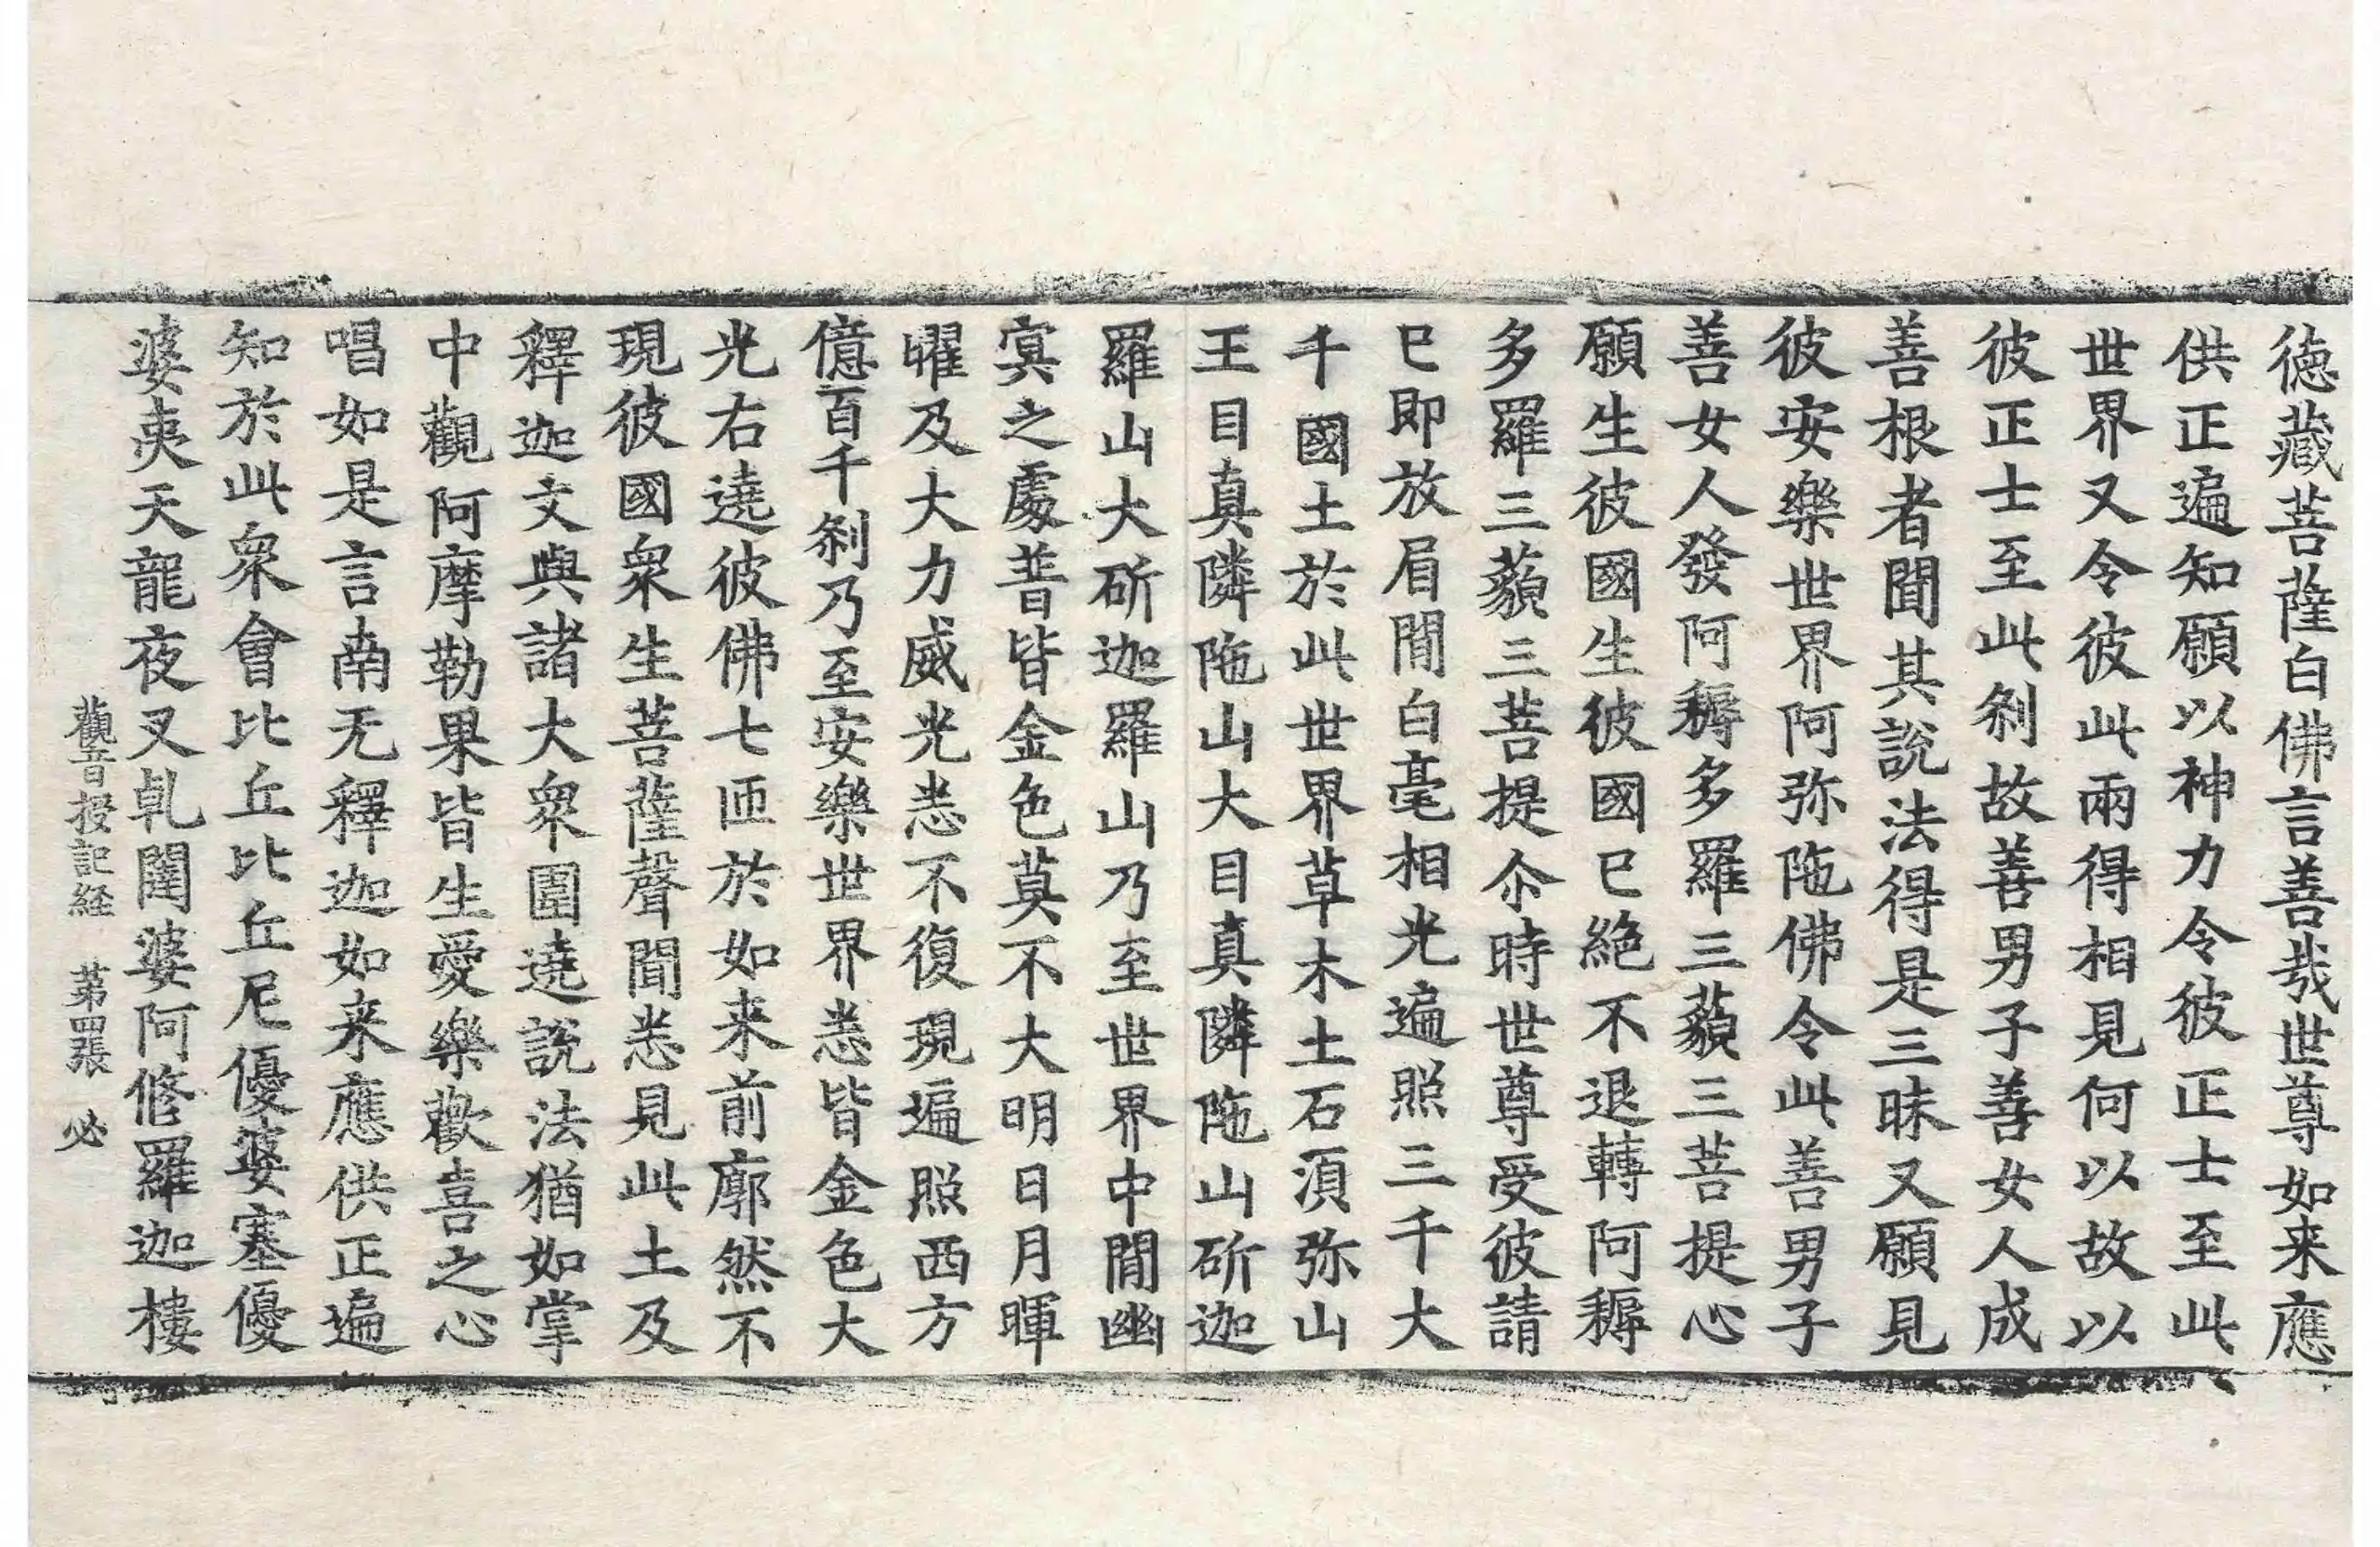 徳藏菩薩白佛言善哉世尊如来應
供正遍知願以神力令彼正士至此
世界又令彼此兩得相見何以故以
彼正士至此剎故善男子善女人成
善根者聞其說法得是三昧又願見
彼安樂世界阿弥陁佛令此善男子
善女人發阿耨多羅三藐三菩提心
願生彼國生彼國已絶不退轉阿耨
多羅三藐三菩提尒時世尊受彼請
已即放眉間白毫相光遍照三千大
千國土於此世界草木土石湏弥山
王目真隣陁山大目真隣陁山斫迦
羅山大斫迦羅山乃至世界中間幽
冥之處普皆金色莫不大明日月暉
曜及大力威光悉不復現遍照西方
億百千剎乃至安樂世界悉皆金色大
光右遶彼佛七匝於如来前廓然不
現彼國衆生菩薩聲聞悉見此土及
釋迦文與諸大衆圍遶說法猶如掌
中觀阿摩勒果皆生愛樂歡喜之心
唱如是言南无釋迦如来應供正遍
知於此衆會比丘比丘尼優婆塞優
婆夷天龍夜叉乹闥婆阿修羅迦樓
觀音授記経　第四張　必